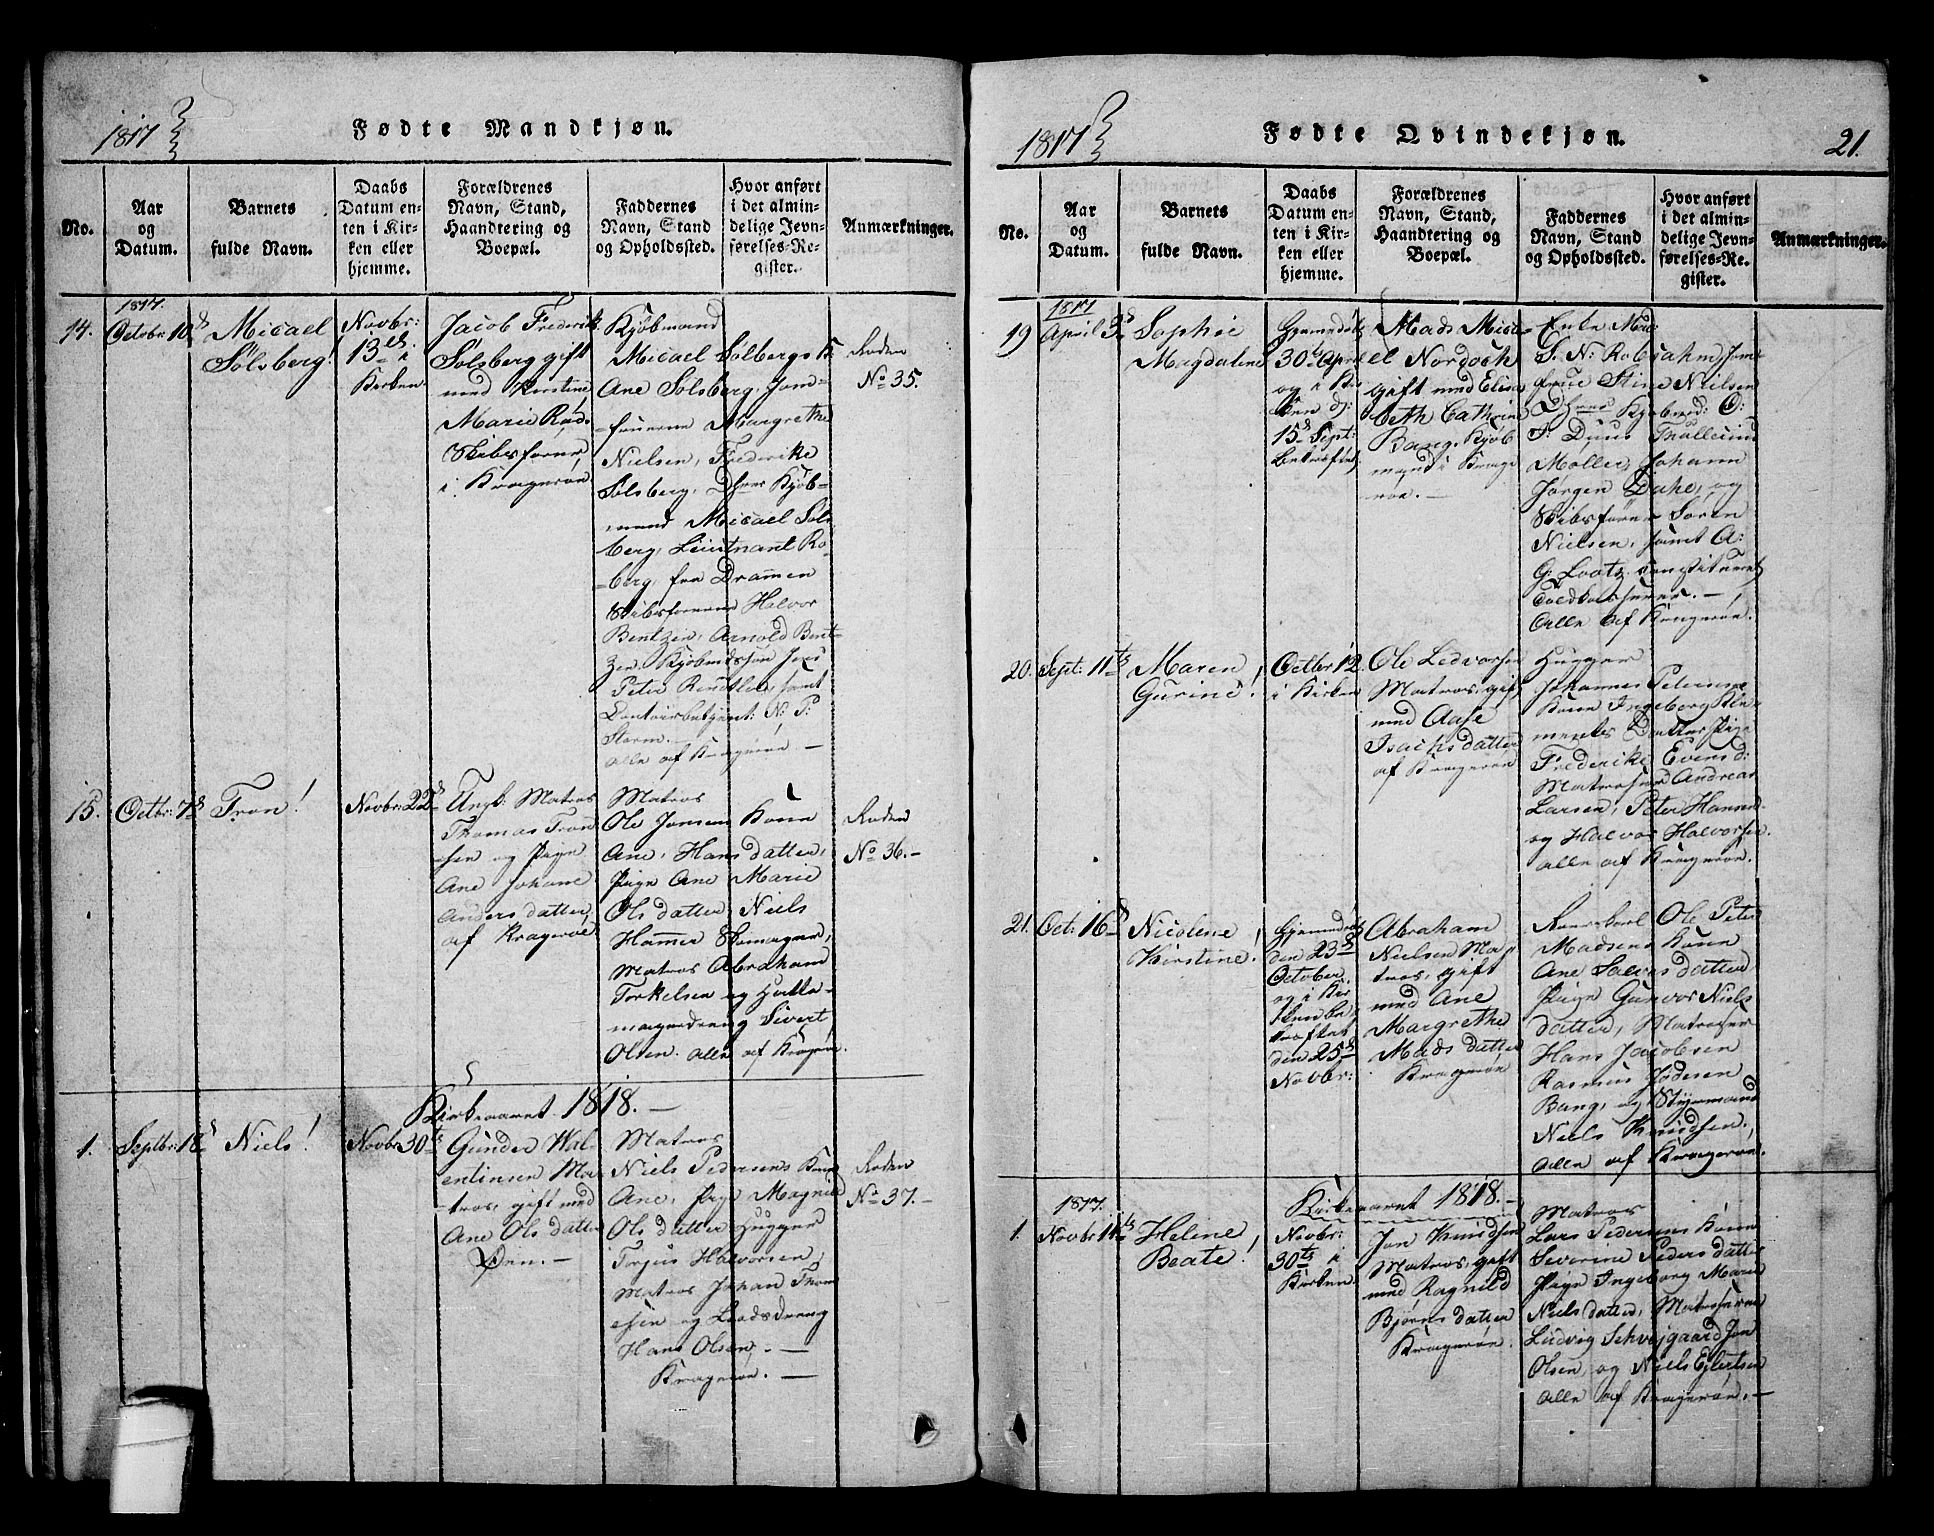 1817
Fødte Mandkjøn.
No.
Aar
og
Datum.
Barnets
fulde Navn.
Daabs
Datum en-
ten i Kir-
ken eller
hjemme.
Forældrenes
Navn, Stand,
Haandtering og
Boepæl.
Faddernes
Navn, Stand
og Opholdssted.
Hvor anført
i det almin-
delige Jevn-
førelses-Re-
gister.
Anmærkninger.
1817.
14.
Octobr: 10de
Micael
Solsberg!
Novbr:
13de i
Kirken
Jacob Frederik
Solsberg gift
med Kirstine
Marie Rød.
Skibsfører
i Kragerøe.
Kjøbmand
Micael Solbergs K:
Ane Solsberg, Jom-
fruerne Margrethe
Nielsen, Frederike
Solsberg, Dhrer Kjøb-
mand Micael Sols-
berg, Lieutnant Ro-
berg, fra Drammen
Skibsførerne Halvor
Bentzen, Arnold Bent-
zen Kjøbmdssøn Jens
Peter samt
Contoirbetjent: N: P:
Storm.
alle af Kragerøe —
Roden
No 35.
15.
Octbr: 7de
Tron!
Novbr: 22de
Ungk: Matros
Thomas Tron
sen og Pige
Ane Johane
Anders datter,
af Kragerøe
Matros
Ole Jensens Kone
Ane, Hans datter,
Pige Ane Marie
Ols datter, Niels
Hammer Skomager,
Matros Abraham
Torkelsen og Hatte-
magerdreng Sivert
Olsen. alle af Kragerøe.
Roden
No 36. —
Kirkeaaret 1818. —
1.
Septbr: 18de
Niels!
Novbr 30te
Gunder Wal-
entinsen Ma-
tros, gift med
Ane Ols datter
Øen. —
Matros
Niels Pedersens Kone
Ane, Pige Magnild
Ols datter Hugger
Torjus Halvorsen,
Matros Johan Thom
esen og Lodsdreng
Hans Olsen, —
Kragerøe. —
Roden
No 37. —
1817
Fødte Qvindekjøn.
21.
No.
Aar
og
Datum.
Barnets
fulde Navn.
Daabs
Datum en-
ten i Kir-
ken eller
hjemme.
Forældrenes
Navn, Stand,
Haandtering og
Boepæl.
Faddernes
Navn, Stand
og Opholdssted.
Hvor anført
i det almin-
delige Jevn-
førelses-Re-
gister.
Anmærkninger.
1817
19
April 3de
Sophie
Magdalene
Hjemmedøbt
30te April
og i Kir
ken d:
15de Sept:
bekræftet
Mads Mica-
el Nordoch
gift med Elisa
beth Cathrine
Bang. Kjøb
mand i Krage
røe. —
Enke Mad:
S. N: Robsahm, Jom
frue Stine Nielsen
Dhrer Kjøbmd: O:
S: Duus Thollesius
Møller, Johann
Jørgen Dahl, og
Skibsfører Søren
Nielsen, samt A:
G: Lootz, constitueret
Toldkasserer. —
Alle af Kragerøe.
20.
Sept: 11te
Maren
Gurine!
Octbr 12
i Kirken
Ole Ledvorsen
Matros, gift
med Aase
Isachs datter
af Kragerøe
Hugger
Johannes Petersens
Kone Ingeborg Kle-
mentes Datter Pige
Frederike Evens d:
Matroserne Andreas
Larsen, Peter Hansen
og Halvor Halvorsen.
alle af Kragerøe.
21.
Oct: 16de
Nicolene
Kirstine!
Hjemmedøbt
den 23de
October
og i Kir
ken be
kræftet
den 25de
Novbr:
Abraham
Nielsen Ma
tros, gift
med Ane
Margrethe
Mads datter
Kragerøe
Ole Peter
Madsens Kone
Ane Salves datter
Pige Gunvor Niels
datter, Matroser
Hans Jacobsen
Rasmus Jødesen
Bang, og Styrmand
Niels Knudsen,
alle af Kragerøe.
Kirkeaaret 1818. —
1817.
1.
Novbr: 11te
Helene
Beate!
Novbr:
30te i
Kirken
Jon Knudsen
Matros, gift
med Ragnild
Bjørns datter
Kragerøe.
Matros
Lars Pedersens Kone
Severine Peders datter
Pige Ingeborg Marie
Niels datter, Matroserne
Ludvig Schvejgaard Jon
Olsen, og Niels Ejlertsen
alle af Kragerøe. —